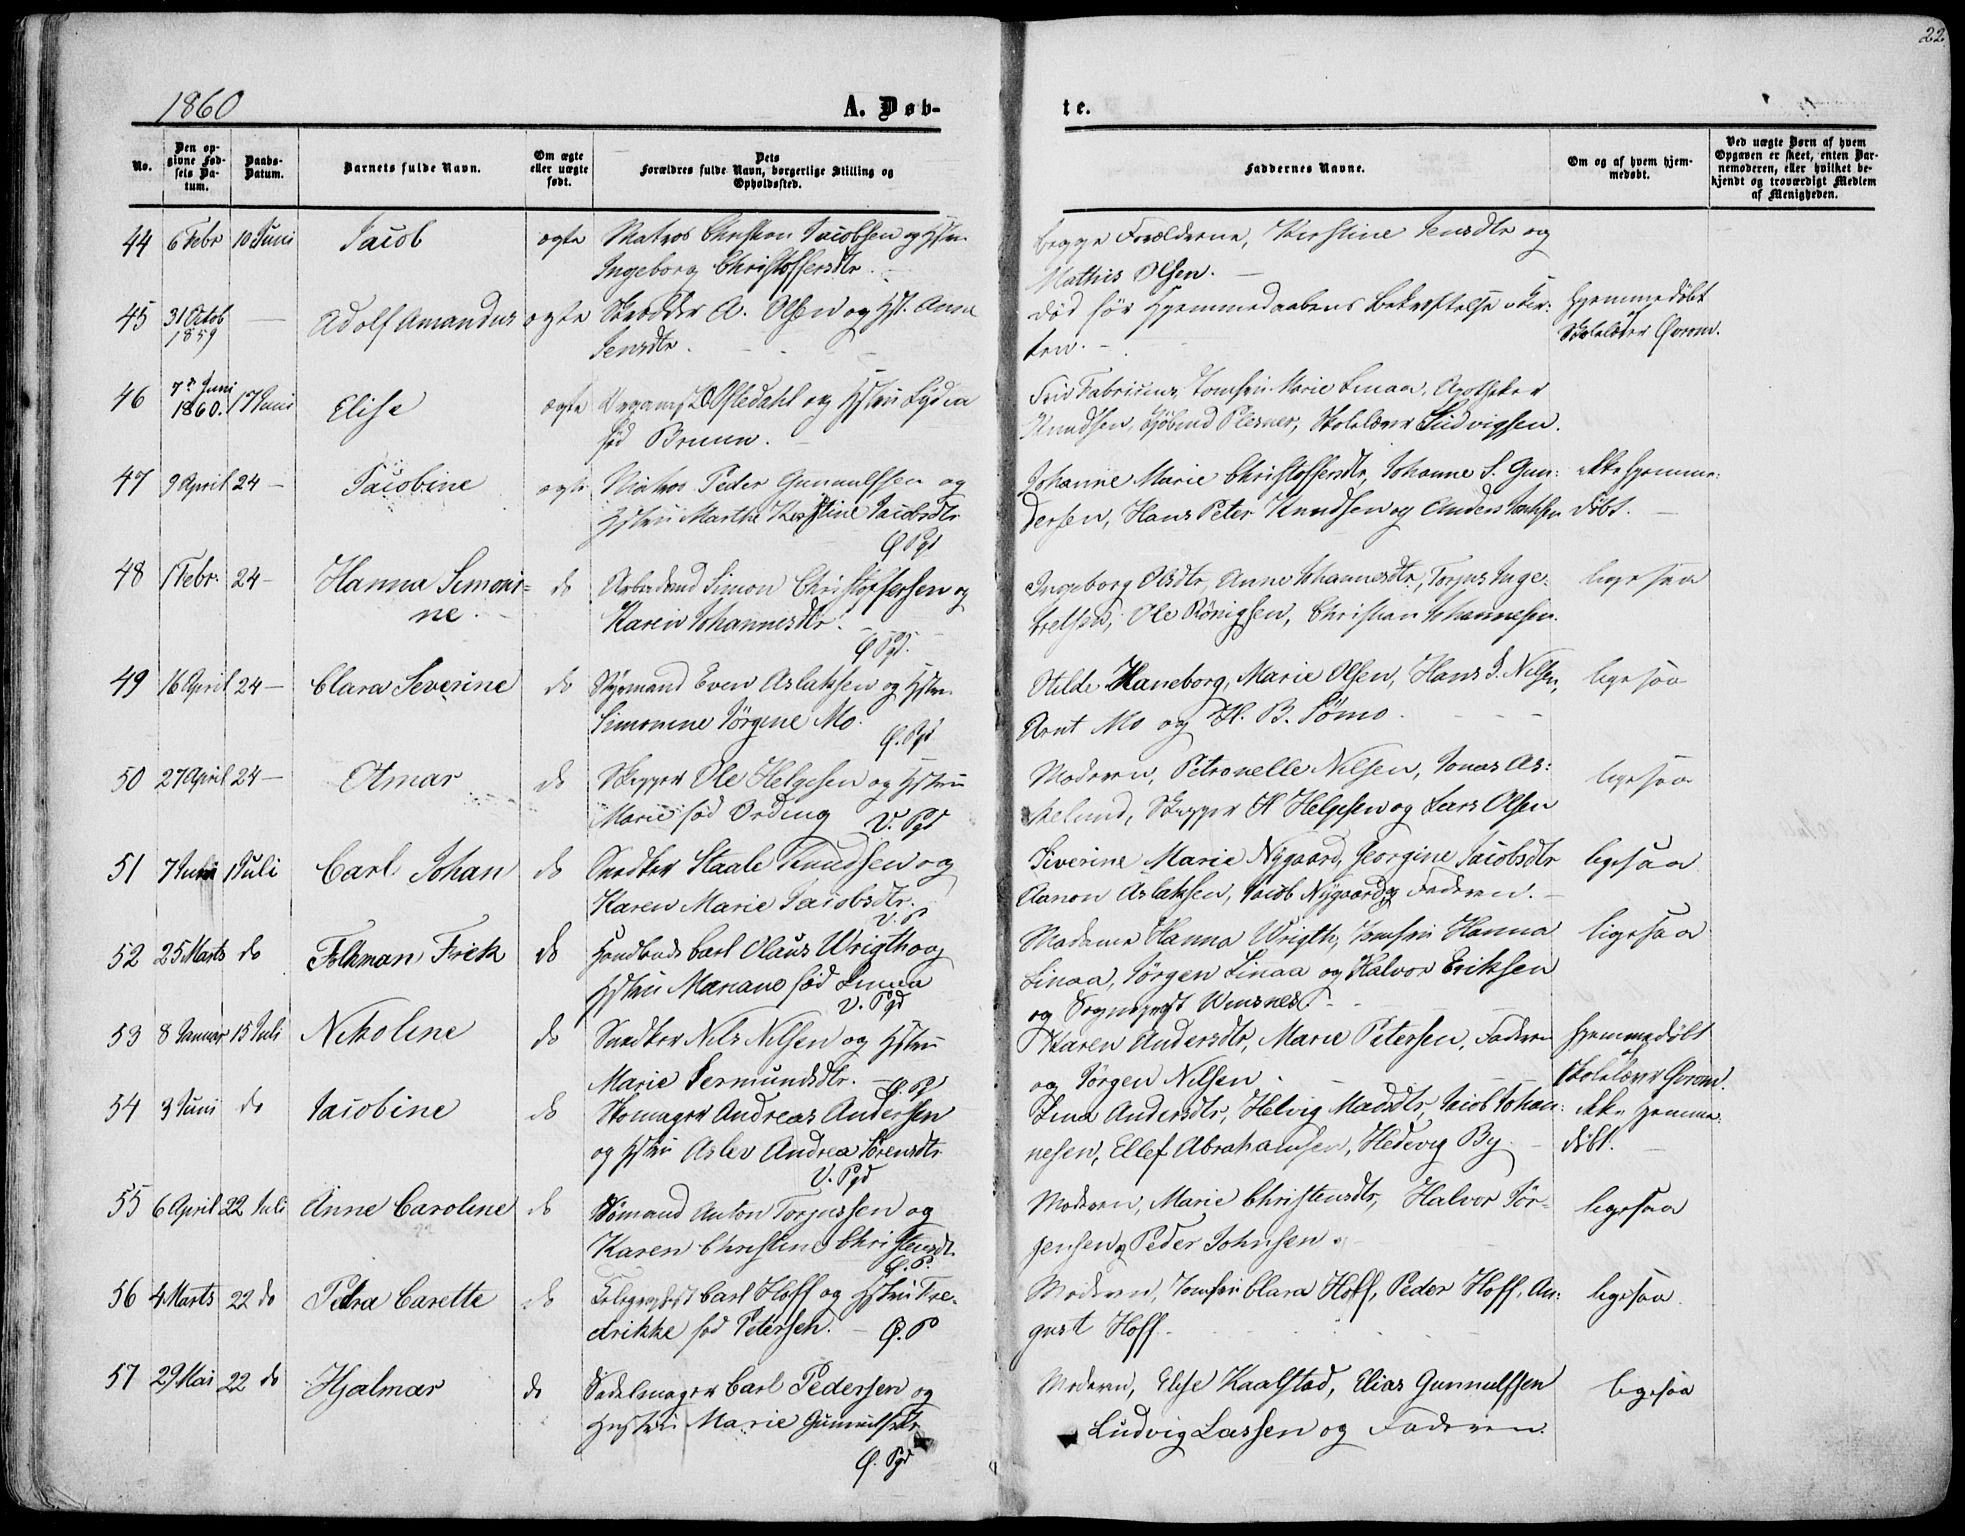 22
1860
A. Døb-
te.
No.
Den op-
givne Fød-
sels Da-
tum.
Daabs-
Datum.
Barnets fulde Navn.
Om ægte
eller uægte
født.
Dets
Forældres fulde Navn, borgerlige Stilling og
Opholdssted.
Faddernes Navne.
Om og af hvem hjem-
medøbt.
Ved uægte Børn af hvem
Opgaven er skeet, enten Bar-
nemoderen, eller hvilket be-
kjendt og troværdigt Medlem
af Menigheden.
44 6 Febr 10 Juni Jacob ægte Matros Christian Jacobsen og Hstru
Ingeborg Christoffersdtr.
begge Forældrene, Kirstine Jensdtr og
Mathis Olsen.
45 31 Octob
1859
Adolf Amandus ægte Skrædder A. Olsen og Hst. Anne
Jensdtr.
død før Hjemmedaabens Bekræftelse i Kir-
ken.
Hjemmedøbt
af
Skolelærer
46 7de Juni
1860. 17 Juni Elise ægte Organist Olsledahl og Hstru Lydia
fød Bruun.
Frü Fabricius, Jomfru Marie Linaa, Apotheker
Knudsen, Kjøbmd Plesner, Skolelærer Ludvigsen.
47 9 April 24 — Jacobine ægte Matros Peder Gunnulfsen og
Hstru Marthe Kirstine Jacobsdtr
Ø Pgd
Johanne Marie Christoffersdtr, Johanne S. Gun-
dersen, Hans Peter Knudsen og Anders Isaksen
ikke Hjemme-
døbt.
48 1 Febr. 24 — Hanna Simoni-
ne. do Arbeidsmd Simon Christoffersen og
Karen Johannesdtr.
Ø Pgd.
Ingeborg Olsdtr, Anne Johannesdtr, Torjus Inge-
Ole Rønigsen, Christian Johannesen.
ligesaa
49 16 April 24 — Clara Severine do Styrmand Even Aslaksen og Hstru
Simonine Jørgine Mo.
Ø. Pgd
Otilde Haneborg, Marie Olsen, Hans J. Nilsen,
Arnt Mo og H. B. Sømo.
ligesaa
50 27 April 24 — Otmar do Skipper Ole Helgesen og Hstru
Marie fød Ording V. Pgd
Moderen, Petronelle Nilsen, Jonas As-
kelund, Skipper H Helgesen og Lars Olsen
ligesaa
51 7 1 Juli Carl Johan do Snedker Staale Knudsen og
Karen Marie Jacobsdtr.
V. P
Severine Marie Nygaard, Georgine Jacobsdtr
Aanon Aslaksen, Jacob Nygaard og Faderen.
ligesaa
52 25 Marts do Folkman Frik do Carl Olaus Wrigth og
Hstru Mariane fød Linaa
V. Pgd
Madame Hanna Wrigth, Jomfru Hanna
Linaa, Jørgen Linaa og Halvor Eriksen
og Sogneprest Wensnes.
ligesaa
53 8 Januar 15 Juli Nikoline do Snedker Nils Nilsen og Hstru
Marie Sermundsdtr. — Ø. Pgd
Karen Andersdtr, Marie Petersen, Faderen
og Jørgen Nilsen.
Hjemmedøbt
af
Skolelærer
54 3 Juni do Jacobine do Skomager Andreas Andersen
og Hstru Aslev Andrea Sørensdtr
V. Pgd
Lina Andersdtr, Helvig Madsdtr, Jacob Johan-
nesen, Ellef Abrahamsen, Hedevig By.
ikke Hjemme-
døbt.
55 6 April 22 Juli Anne Caroline do Sømand Anton Torjussen og
Karen Christine Christensdtr.
Ø. P.
Moderen, Marie Christensdtr, Halvor Jør-
gensen og Peder Johnsen.
ligesaa
56 4 Marts 22 do Petra Carette do Telegraphist Carl Hoff og Hstru Fre-
drikke fød Petersen. — Ø. P
Moderen, Jomfru Clara Hoff, Peder Hoff, Au-
gust Hoff.
ligesaa.
57 29 Mai 22 do Hjalmar do Sadelmager Carl Pedersen og
Hustru Marie Gunnulfsdtr
Ø. Pgd
Moderen, Elise Kaalstad, Elias Gunnulfsen
Ludvig Lassen og Faderen.
ligesaa